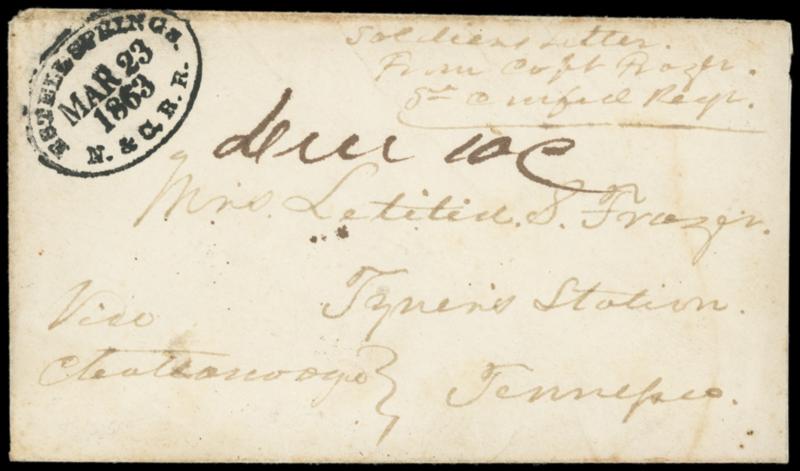 ESTELL SPRINGS.
MAR 23
1863
N. & C. R. R.
Soldiers Letter.
From Capt Frazer.
5th Confed Regt.
Due 10c
Mrs. Letitia. S. Frazer.
Tyner's Station.
Via
Chattanooga } Tennessee.